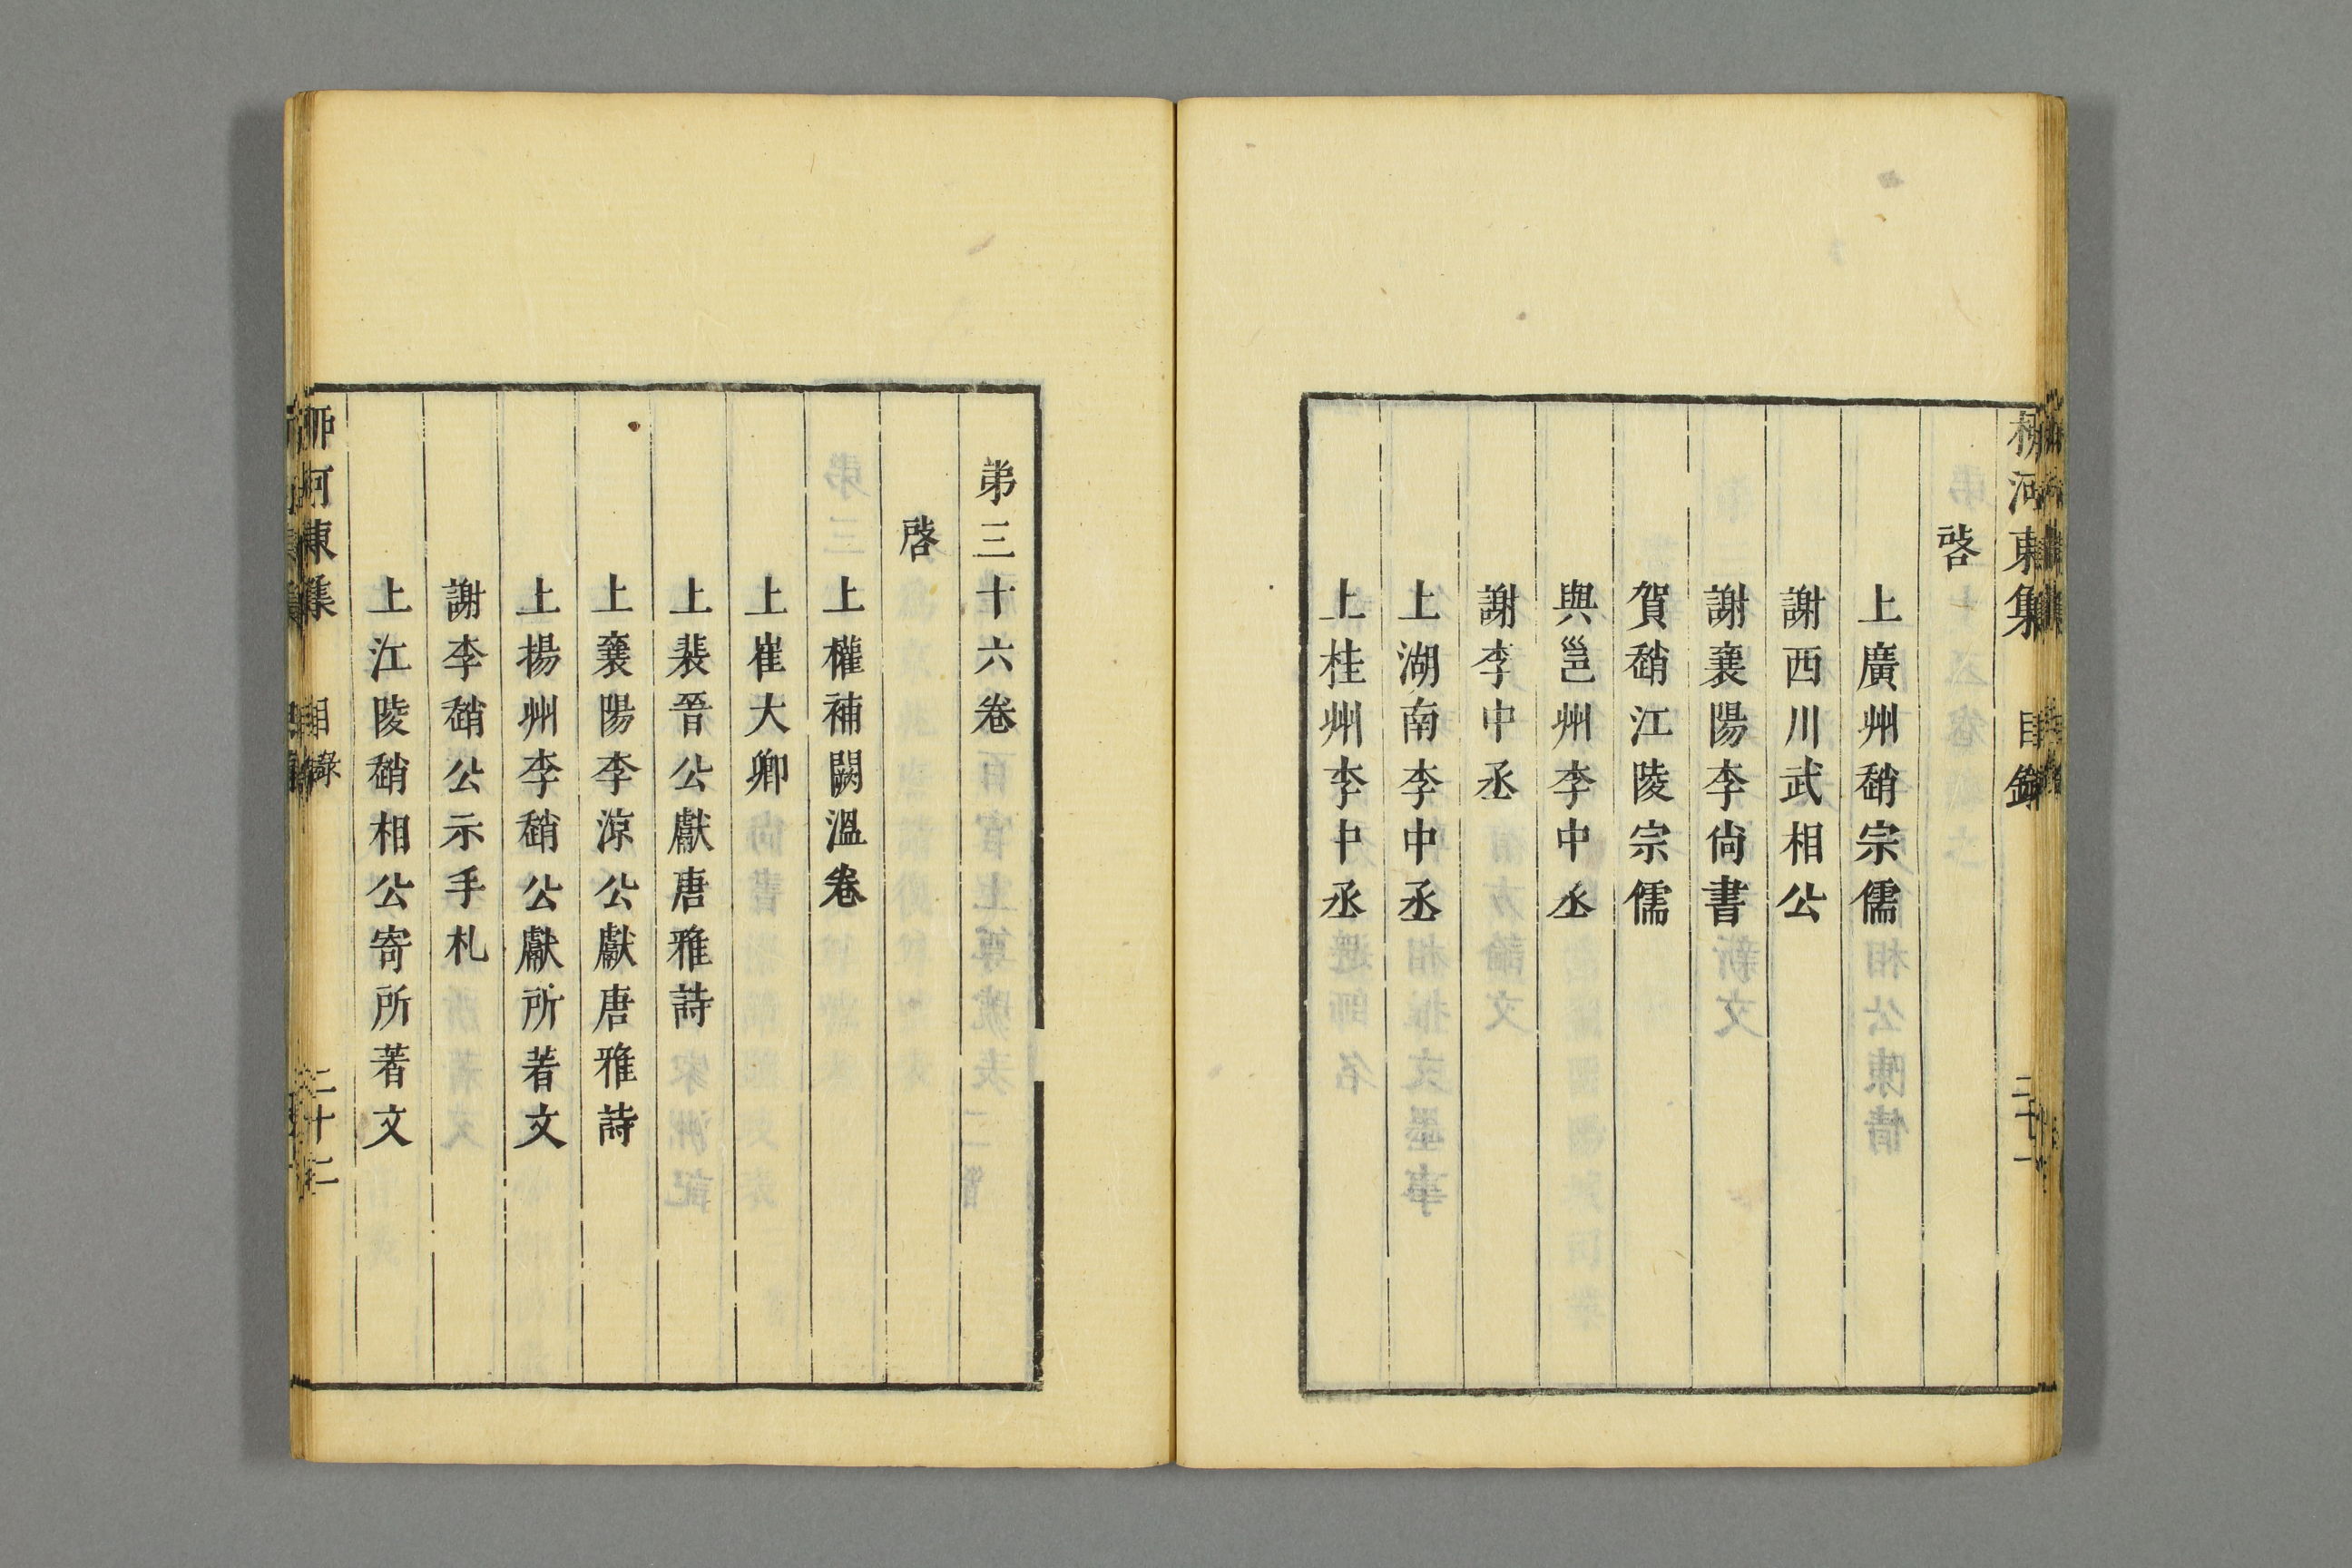 柳河東集 目錄 二十一
啓
上廣州趙宗儒
謝西川武相公
謝襄陽李尙書
賀趙江陵宗儒
與邕州李中丞
謝李中丞
上湖南李中丞
上桂州李中丞
弟三十六卷
啓
上權補闕溫卷
上崔大卿
上裴晉公獻唐雅詩
上襄陽李涼公獻唐雅詩
上揚州李趙公獻所著文
謝李趙公示手札
上江陵趙相公寄所著文
柳河東集 目錄 二十二